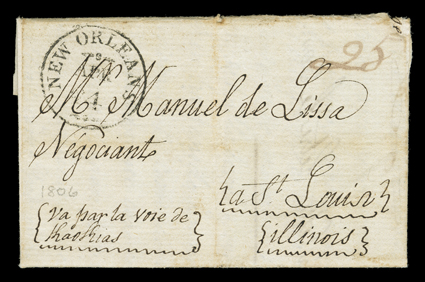 NEW ORLEANS
1
25
Mr. Manuel de Lissa
Négociant
à St. Louis
illinois
1806
va par la voie de
Kaokias